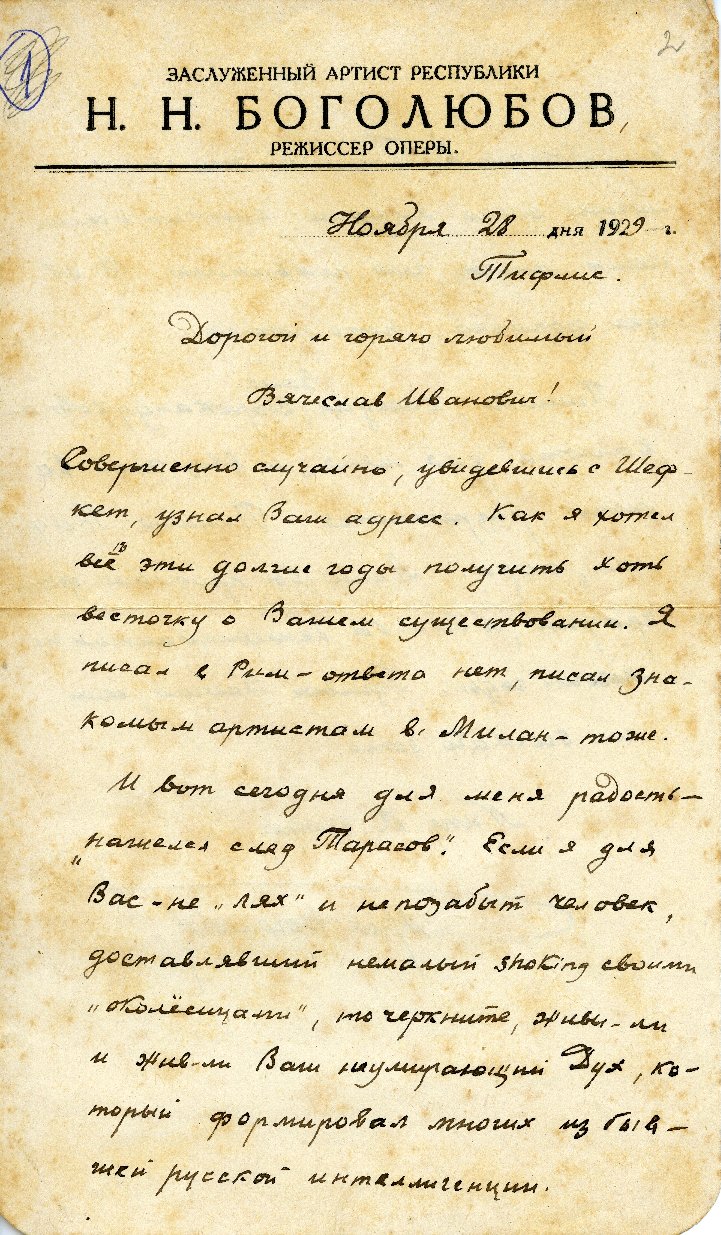 1
2
ЗАСЛУЖЕННЫЙ АРТИСТ РЕСПУБЛИКИ
Н. Н. БОГОЛЮБОВ,
РЕЖИССЕР ОПЕРЫ.
Ноября 28 дня 1929 г.
Тифлис.
Дорогой и горячо любимый
Вячеслав Иванович!
Совершенно случайно, увидевшись с Шеф-
кет, узнал Ваш адресс. Как я хотел
все эти долгие годы получить хоть
весточку о Вашем существовании. Я
писал в Рим – ответа нет, писал зна-
комым артистам в Милан – тоже.
И вот сегодня для меня радость –
„нашелся след Тарасов“. Если я для
Вас – не „лях“ и непозабыт человек,
доставлявший немалый shoking своими
„околёсицами“, то черкните, живы-ли
и жив-ли Ваш неумирающий Дух, ко-
торый формировал многих из быв-
шей русской интеллигенции.